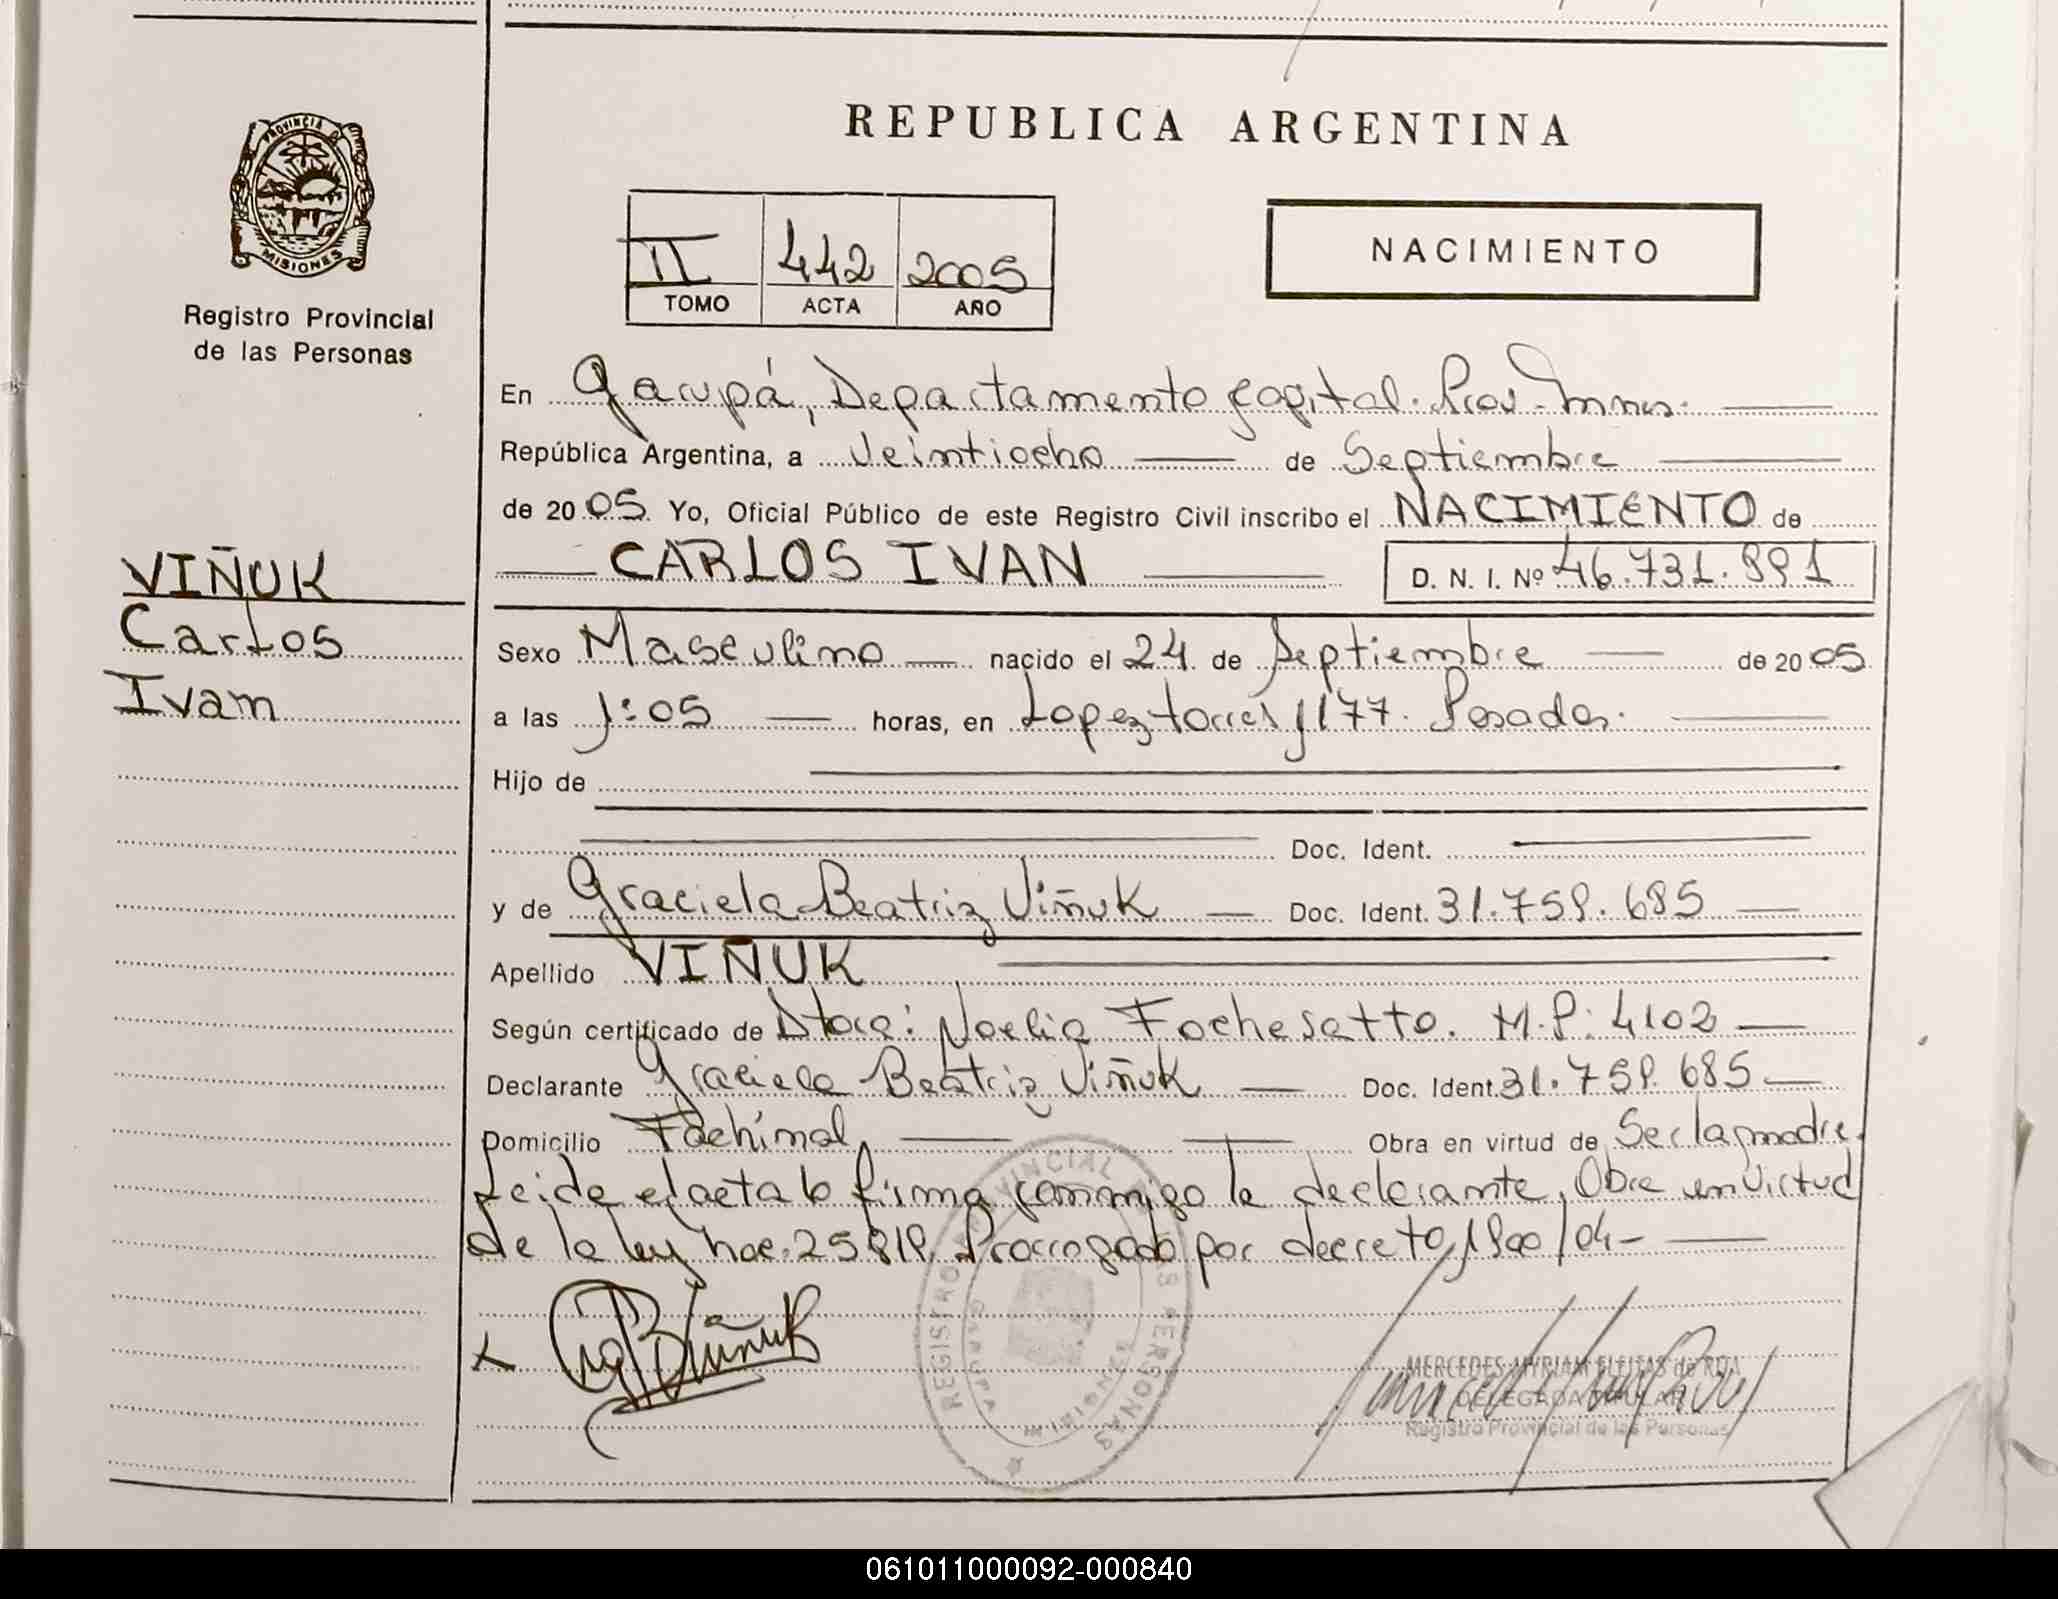 REPUBLICA ARGENTINA
PROVINCIA DE
MISIONES
Registro Provincial
de las Personas
II 442 2005
TOMO ACTA AÑO
NACIMIENTO
En Garupá, Departamento Capital. Prov. Mnes.
República Argentina, a Veintiocho de Septiembre
de 2005 Yo, Oficial Público de este Registro Civil inscribo el NACIMIENTO de
CARLOS IVAN D. N. I. Nº 46.731.991
VIÑUK
Carlos
Ivan
Sexo Masculino nacido el 24 de Septiembre de 2005
a las 1:05 horas, en Lopez torres 1177. Posadas.
Hijo de
Doc. Ident.
y de Graciela Beatriz Viñuk Doc. Ident. 31.759.685
Apellido VIÑUK
Según certificado de Dtora: Noelia Fochesatto. M.P: 4102
Declarante Graciela Beatriz Viñuk Doc. Ident. 31.759.685
Domicilio Fachinal, Obra en virtud de Ser la madre.
Leida el acta lo firma conmigo la declarante, Obra en virtud
de la ley nac. 25819. Prorrogado por decreto 1900/04-
X B Viñuk
REGISTRO PROVINCIAL DE LAS PERSONAS
GARUPA
MISIONES
MERCEDES MYRIAM FLEITAS de ROA
DELEGADA TITULAR
Registro Provincial de las Personas
061011000092-000840